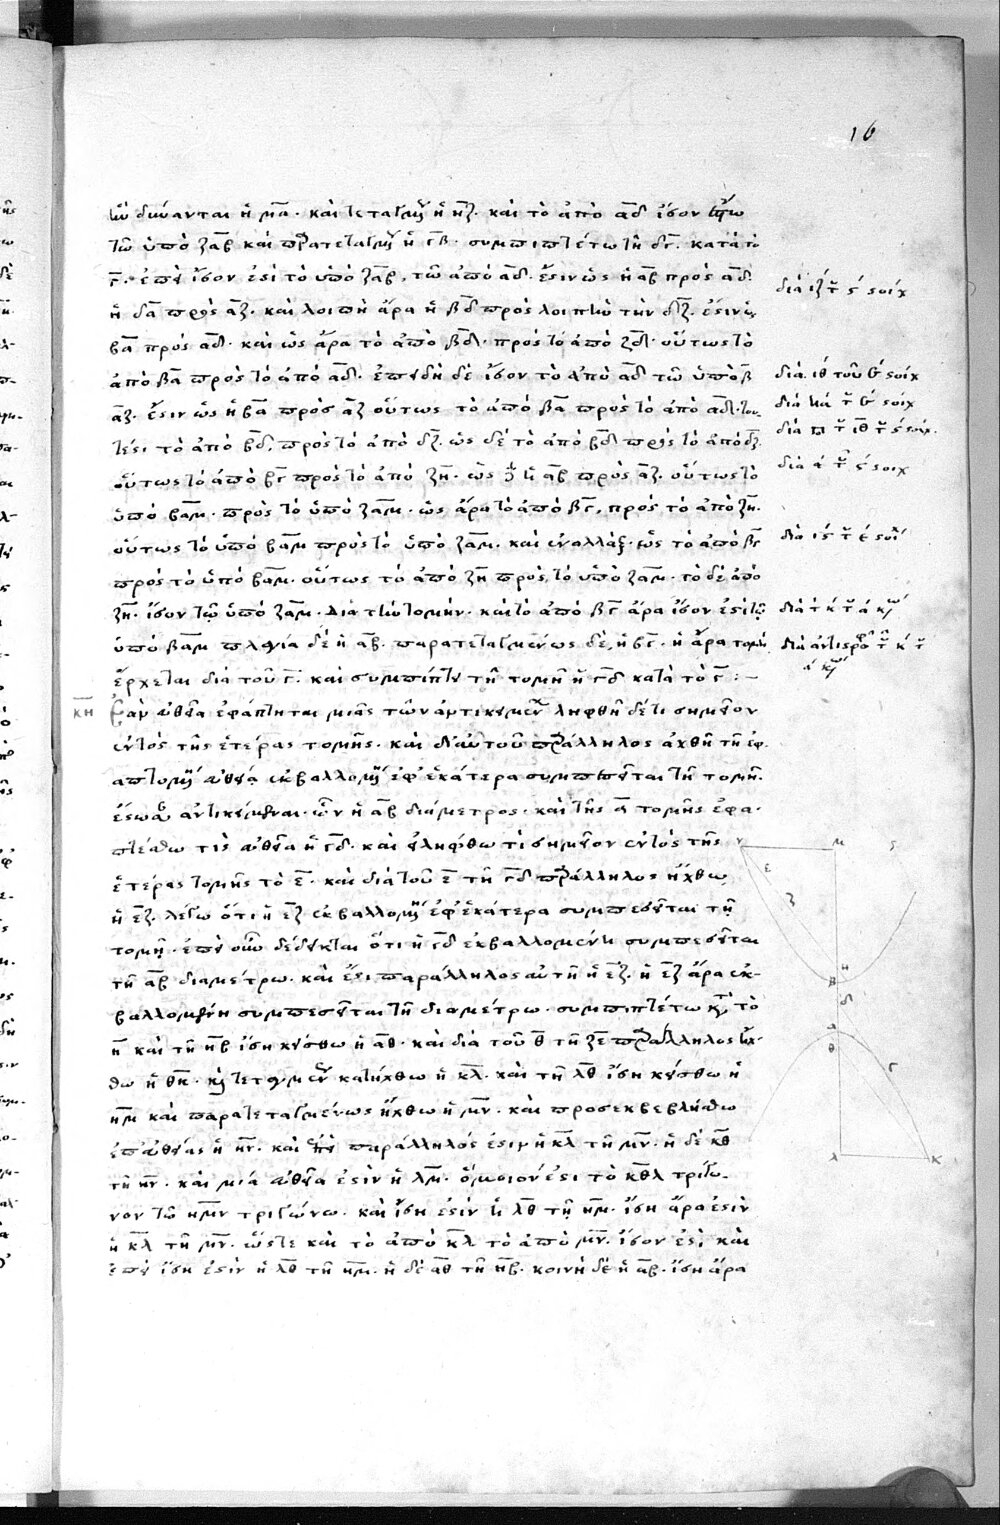 16
ἣν δύνανται ἡ μα. καὶ τεταγμένως ἡ ηζ. καὶ τὸ ἀπὸ αδ ἴσον ἔστω
τῷ ὑπὸ ζαβ καὶ παρατεταγμένως ἡ γβ. συμπιπτέτω τῇ δγ. κατὰ τὸ
γ. ἐπεὶ ἴσον ἐστὶ τὸ ὑπὸ ζαβ, τῷ ἀπὸ αδ. ἔστιν ὡς ἡ αβ πρὸς αδ.
διὰ ιζ τοῦ ϛ στοιχ
ἡ δα πρὸς αζ. καὶ λοιπὴ ἄρα ἡ βδ πρὸς λοιπὴν τὴν δζ. ἐστιν ὡς
βα πρὸς αδ. καὶ ὡς ἄρα τὸ ἀπὸ βδ. πρὸς τὸ ἀπὸ ζδ. οὕτως τὸ
ἀπὸ βα πρὸς τὸ ἀπὸ αδ. ἐπειδὴ δὲ ἴσον τὸ ἀπὸ αδ τῷ ὑπὸ β
διὰ ιθ τοῦ στοιχ
αζ. ἔστιν ὡς ἡ βα πρὸς αζ οὕτως τὸ ἀπὸ βα πρὸς τὸ ἀπὸ αδ. του
διὰ κα στοιχ
τέστι τὸ ἀπὸ βδ, πρὸς τὸ ἀπὸ δζ. ὡς δὲ τὸ ἀπὸ βδ πρὸς τὸ ἀπὸ δζ
οὕτως τὸ ἀπὸ βγ πρὸς τὸ ἀπὸ ζη. ὡς δὲ ἡ αβ πρὸς αζ. οὕτως τὸ
διὰ α τοῦ ϛ στοιχ
ὑπὸ βαμ. πρὸς τὸ ὑπὸ ζαμ. ὡς ἄρα τὸ ἀπὸ βγ, πρὸς τὸ ἀπὸ ζη.
οὕτως τὸ ὑπὸ βαμ πρὸς τὸ ὑπὸ ζαμ. καὶ ἐναλλάξ. ὡς τὸ ἀπὸ βγ
διὰ ιϛ τοῦ ε στοιχ
πρὸς τὸ ὑπὸ βαμ. οὕτως τὸ ἀπὸ ζη πρὸς τὸ ὑπὸ ζαμ. τὸ δὲ ἀπὸ
ζη. ἴσον τῷ ὑπὸ ζαμ. διὰ τὴν τομήν. καὶ τὸ ἀπὸ βγ ἄρα ἴσον ἐστὶ τῷ
ὑπὸ βαμ πλαγία δὲ ἡ αβ. παρατεταγμένως δὲ, ἡ βγ. ἡ ἄρα τομὴ
ἔρχεται διὰ τοῦ γ. καὶ συμπίπτει τῇ τομῇ ἡ γδ κατὰ τὸ γ :–
κη Ἐὰν εὐθεῖα ἐφάπτηται μιᾶς τῶν ἀντικειμένων ληφθῇ δέ τι σημεῖον
ἐντὸς τῆς ἑτέρας τομῆς. καὶ δι' αὐτοῦ παράλληλος ἀχθῇ τῇ ἐφ
απτομένῃ εὐθεῖα ἐκβαλλομένη ἐφ' ἑκάτερα συμπεσεῖται τῇ τομῇ.
ἔστωσαν ἀντικείμεναι. ὧν ἡ αβ διάμετρος. καὶ τῆς α τομῆς ἐφα.
πτέσθω τις εὐθεῖα ἡ γδ. καὶ εἰλήφθω τι σημεῖον ἐντὸς τῆς
ἑτέρας τομῆς τὸ ε. καὶ διὰ τοῦ ε τῇ γδ παράλληλος ἤχθω
ἡ εζ. λέγω ὅτι ἡ εζ ἐκβαλλομένη ἐφ' ἑκάτερα συμπεσεῖται τῇ
τομῇ. ἐπεὶ οὖν δέδεικται ὅτι ἡ γδ ἐκβαλλομένη συμπεσεῖται
τῇ αβ διαμέτρῳ. καὶ ἔστι παράλληλος αὐτῇ ἡ εζ. ἡ εζ ἄρα ἐκ-
βαλλομένη συμπεσεῖται τῇ διαμέτρῳ. συμπιπτέτω κατὰ τὸ
η καὶ τῇ ηβ ἴση κείσθω ἡ αθ. καὶ διὰ τοῦ θ τῇ ζε παράλληλος ἤχ-
θω ἡ θκ. καὶ τεταγμένως κατήχθω ἡ κλ. καὶ τῇ λθ ἴση κείσθω ἡ
ημ καὶ παρατεταγμένως ἤχθω ἡ μν. καὶ προσεκβεβλήσθω
ἐπ' εὐθείας ἡ ην. καὶ ἐπεὶ παράλληλός ἐστιν ἡ κλ τῇ μν. ἡ δὲ κθ
τῇ ην. καὶ μία εὐθεῖα ἐστὶν ἡ λμ. ὅμοιόν ἐστι τὸ κθλ τρίγω-
νον τῷ ημν τριγώνῳ. καὶ ἴση ἐστὶν ἡ λθ τῇ ημ. ἴση ἄρα ἐστὶν
ἡ κλ τῇ μν. ὥστε καὶ τὸ ἀπὸ κλ τὸ ἀπὸ μν. ἴσον ἐστὶ καὶ
ἐπεὶ ἴση ἐστὶν ἡ λθ τῇ ημ. ἡ δὲ αθ τῇ ηβ. κοινὴ δὲ ἡ αβ. ἴση ἄρα
ν μ
ε
ζ
η
β
δ
α
θ
γ
λ κ